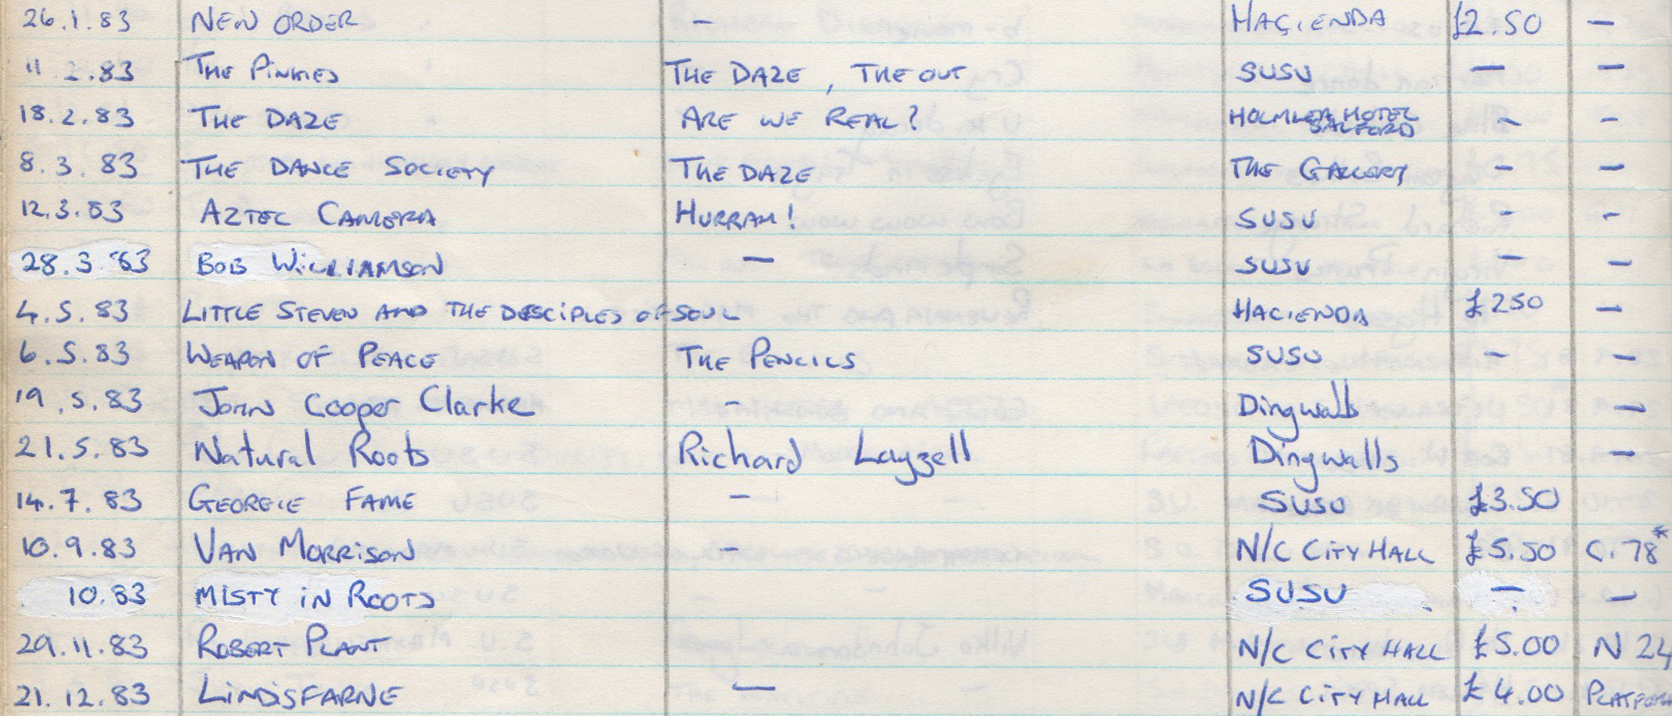 26.1.83 NEW ORDER — HACIENDA £2.50 —
11.2.83 THE PINKIES THE DAZE, THE OUT SUSU — —
18.2.83 THE DAZE ARE WE REAL? HOLMLEA HOTEL SALFORD - -
8.3.83 THE DANCE SOCIETY THE DAZE THE GALLERY - -
12.3.83 AZTEC CAMERA HURRAH! SUSU - -
28.3.83 BOB WILLIAMSON — SUSU — —
4.5.83 LITTLE STEVEN AND THE DESCIPLES OF SOUL HACIENDA £250 —
6.5.83 WEAPON OF PEACE THE PENCILS SUSU - —
19.5.83 John Cooper Clarke - Dingwalls —
21.5.83 Natural Roots Richard Layzell Dingwalls —
14.7.83 GEORGIE FAME - SUSU £3.50
10.9.83 VAN MORRISON — N/C CITY HALL £5.50 C.78*
10.83 MISTY IN ROOTS SUSU — —
29.11.83 ROBERT PLANT N/C CITY HALL £5.00 N 24
21.12.83 LINDISFARNE — N/C CITY HALL £4.00